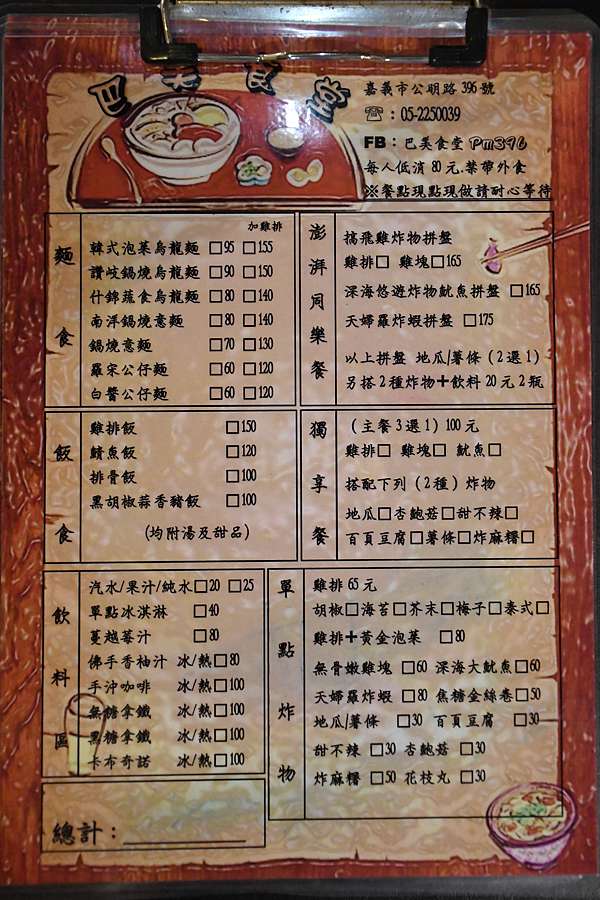 巴芙食堂
嘉義市公明路396號
☎：05-2250039
FB：巴芙食堂 Pm396
每人低消80元.禁帶外食
※餐點現點現做請耐心等待
麵食
加雞排
韓式泡菜烏龍麵 □95 □155
讚岐鍋燒烏龍麵 □90 □150
什錦蔬食烏龍麵 □80 □140
南洋鍋燒意麵 □80 □140
鍋燒意麵 □70 □130
羅宋公仔麵 □60 □120
白醬公仔麵 □60 □120
澎湃同樂餐
搞飛雞炸物拼盤
雞排□ 雞塊□165
深海悠遊炸物魷魚拼盤 □165
天婦羅炸蝦拼盤 □175
以上拼盤 地瓜/薯條（2選1）
另搭2種炸物+飲料20元2瓶
飯食
雞排飯 □150
鯖魚飯 □120
排骨飯 □100
黑胡椒蒜香豬飯 □100
(均附湯及甜品)
獨享餐
（主餐3選1）100元
雞排□ 雞塊□ 魷魚□
搭配下列（2種）炸物
地瓜□杏鮑菇□甜不辣□
百頁豆腐□薯條□炸麻糬□
飲料區
汽水/果汁/純水□20 □25
單點冰淇淋 □40
蔓越莓汁 □80
佛手香柚汁 冰/熱□80
手沖咖啡 冰/熱□100
無糖拿鐵 冰/熱□100
黑糖拿鐵 冰/熱□100
卡布奇諾 冰/熱□100
單點炸物
雞排65元
胡椒□海苔□芥末□梅子□泰式□
雞排+黃金泡菜 □80
無骨嫩雞塊 □60 深海大魷魚□60
天婦羅炸蝦 □80 焦糖金絲卷□50
地瓜/薯條 □30 百頁豆腐 □30
甜不辣 □30 杏鮑菇 □30
炸麻糬 □50 花枝丸 □30
總計：